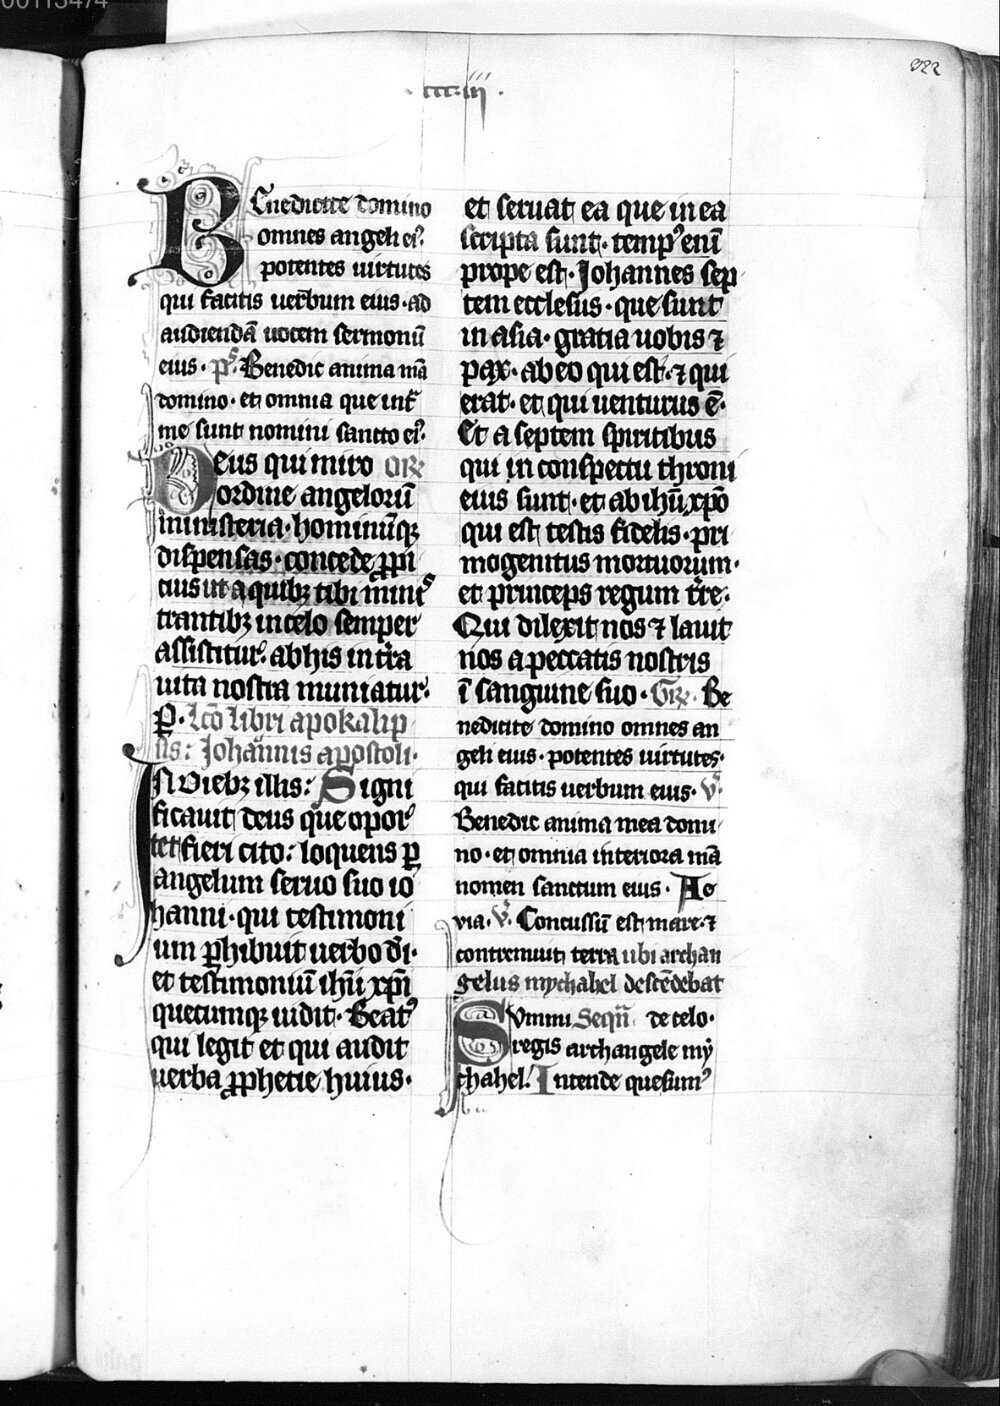 00113474
322
ccc.iii.
Benedicite domino
omnes angeli ei⁹.
potentes uirtutes
qui facitis uerbum eius · ad
audiendā uocem sermonū
eius · p̄s Benedic anima mā
domino · et omnia que int̄
me sunt nomini sancto ei⁹.
Deus qui miro or̄
ordine angelorū
ministeria · hominūqꝫ
dispensas · concede ꝓpi
cius ut a quibꝫ tibi minis
trantibꝫ in celo semper
assistitur. ab his in t̄ra
uita nostra muniatur.
P. Lc̄o libri apokalip
sis: Johannis apostoli·
IN diebꝫ illis: Signi
ficauit deus que opor
tet fieri cito: loquens ꝑ
angelum seruo suo io
hanni · qui testimoni
um ꝑhibuit uerbo dī·
et testimoniū ihū xp̄i
quecumqꝫ uidit · Beat⁹
qui legit et qui audit
uerba ꝓphetie huius·
et seruat ea que in ea
scripta sunt · temp⁹ enī
prope est · Johannes sep
tem ecclesiis · que sunt
in asia · gratia uobis ⁊
pax · ab eo qui est · ⁊ qui
erat · et qui uenturus ē·
Et a septem spiritibus
qui in conspectu throni
eius sunt · et ab ihū xp̄o
qui est testis fidelis · pri
mogenitus mortuorum·
et princeps regum t̄re·
Qui dilexit nos ⁊ lauit
nos a peccatis nostris
ī sanguine suo · Gr̄. Be
nedicite domino omnes an
geli eius · potentes uirtutes·
qui facitis uerbum eius · v̄.
Benedic anima mea domi
no · et omnia interiora mā
nomen sanctum eius · Ae
via. v̄. Concussū est mare · ⁊
contremuit terra ubi archan
gelus mychahel descēdebat
Summi Seqn̄. de celo·
regis archangele my
chahel. Intende quesum⁹